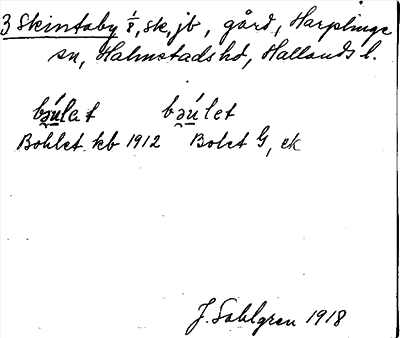 3 Skintaby 1/8, sk, jb, gård, Harplinge
sn, Halmstads hd, Hallands l.
bəúlet bəúlet
Bohlet kb 1912 Bolet G, ek
J. Sahlgren 1918